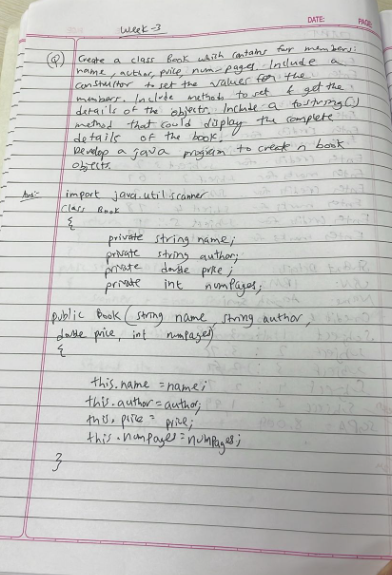 DATE:
PAGE
Week-3
(Q) Create a class Book which contains four members:
name, author, price, num-pages. Include a
constructor to set the values for the
members. Include methods to set & get the
details of the objects. Include a toString()
method that could display the complete
details of the book.
Develop a java program to create n book
objects.
Ans:- import java.util scanner
class Book
{
private string name;
private string author;
private double price;
private int numPages;
public Book (string name, string author,
double price, int numpages)
{
this.name = name;
this.author = author;
this.price = price;
this.numpages = numPages;
}